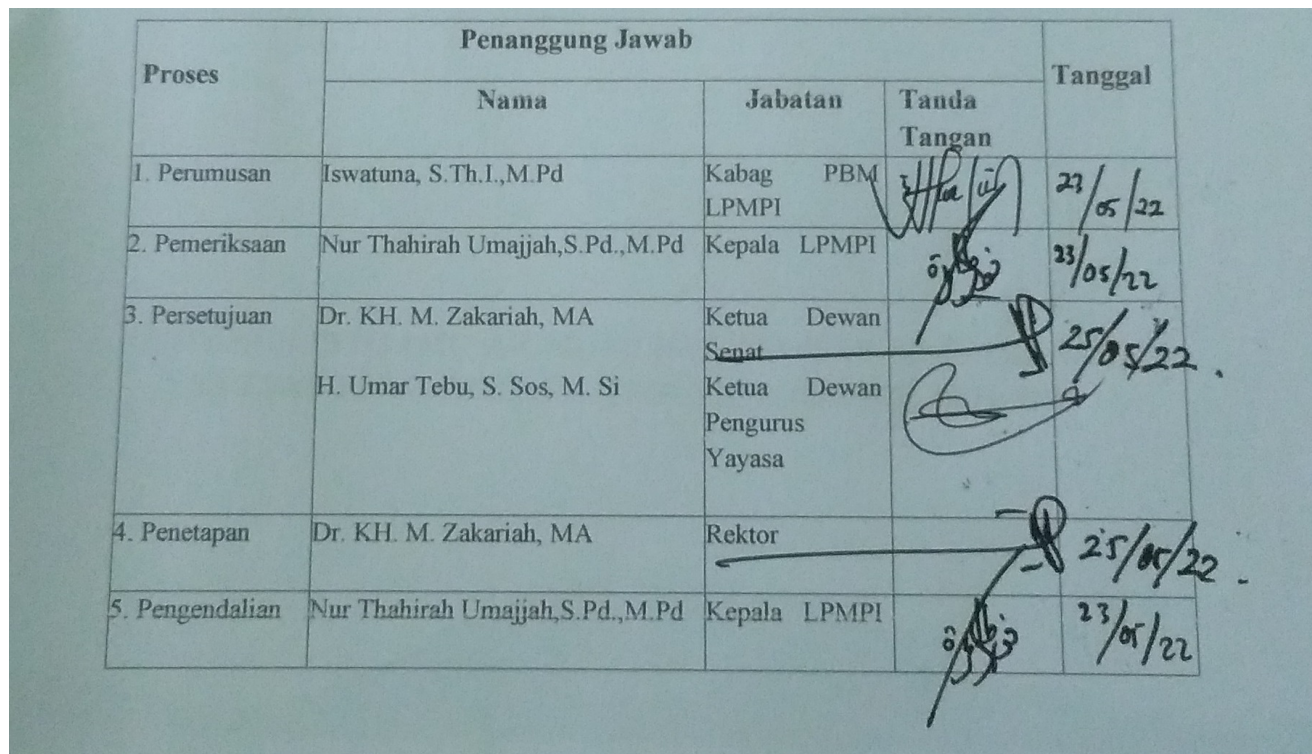 Penanggung Jawab
Proses
Tanggal
Nama
Jabatan
Tanda
Tangan
1. Perumusan Iswatuna, S.Th.I.,M.Pd Kabag PBM
LPMPI
23/05/22
2. Pemeriksaan Nur Thahirah Umajjah,S.Pd.,M.Pd Kepala LPMPI 23/05/22
3. Persetujuan Dr. KH. M. Zakariah, MA Ketua Dewan
Senat
25/05/22.
H. Umar Tebu, S. Sos, M. Si Ketua Dewan
Pengurus
Yayasa
4. Penetapan Dr. KH. M. Zakariah, MA Rektor 25/05/22.
5. Pengendalian Nur Thahirah Umajjah,S.Pd.,M.Pd Kepala LPMPI 23/05/22